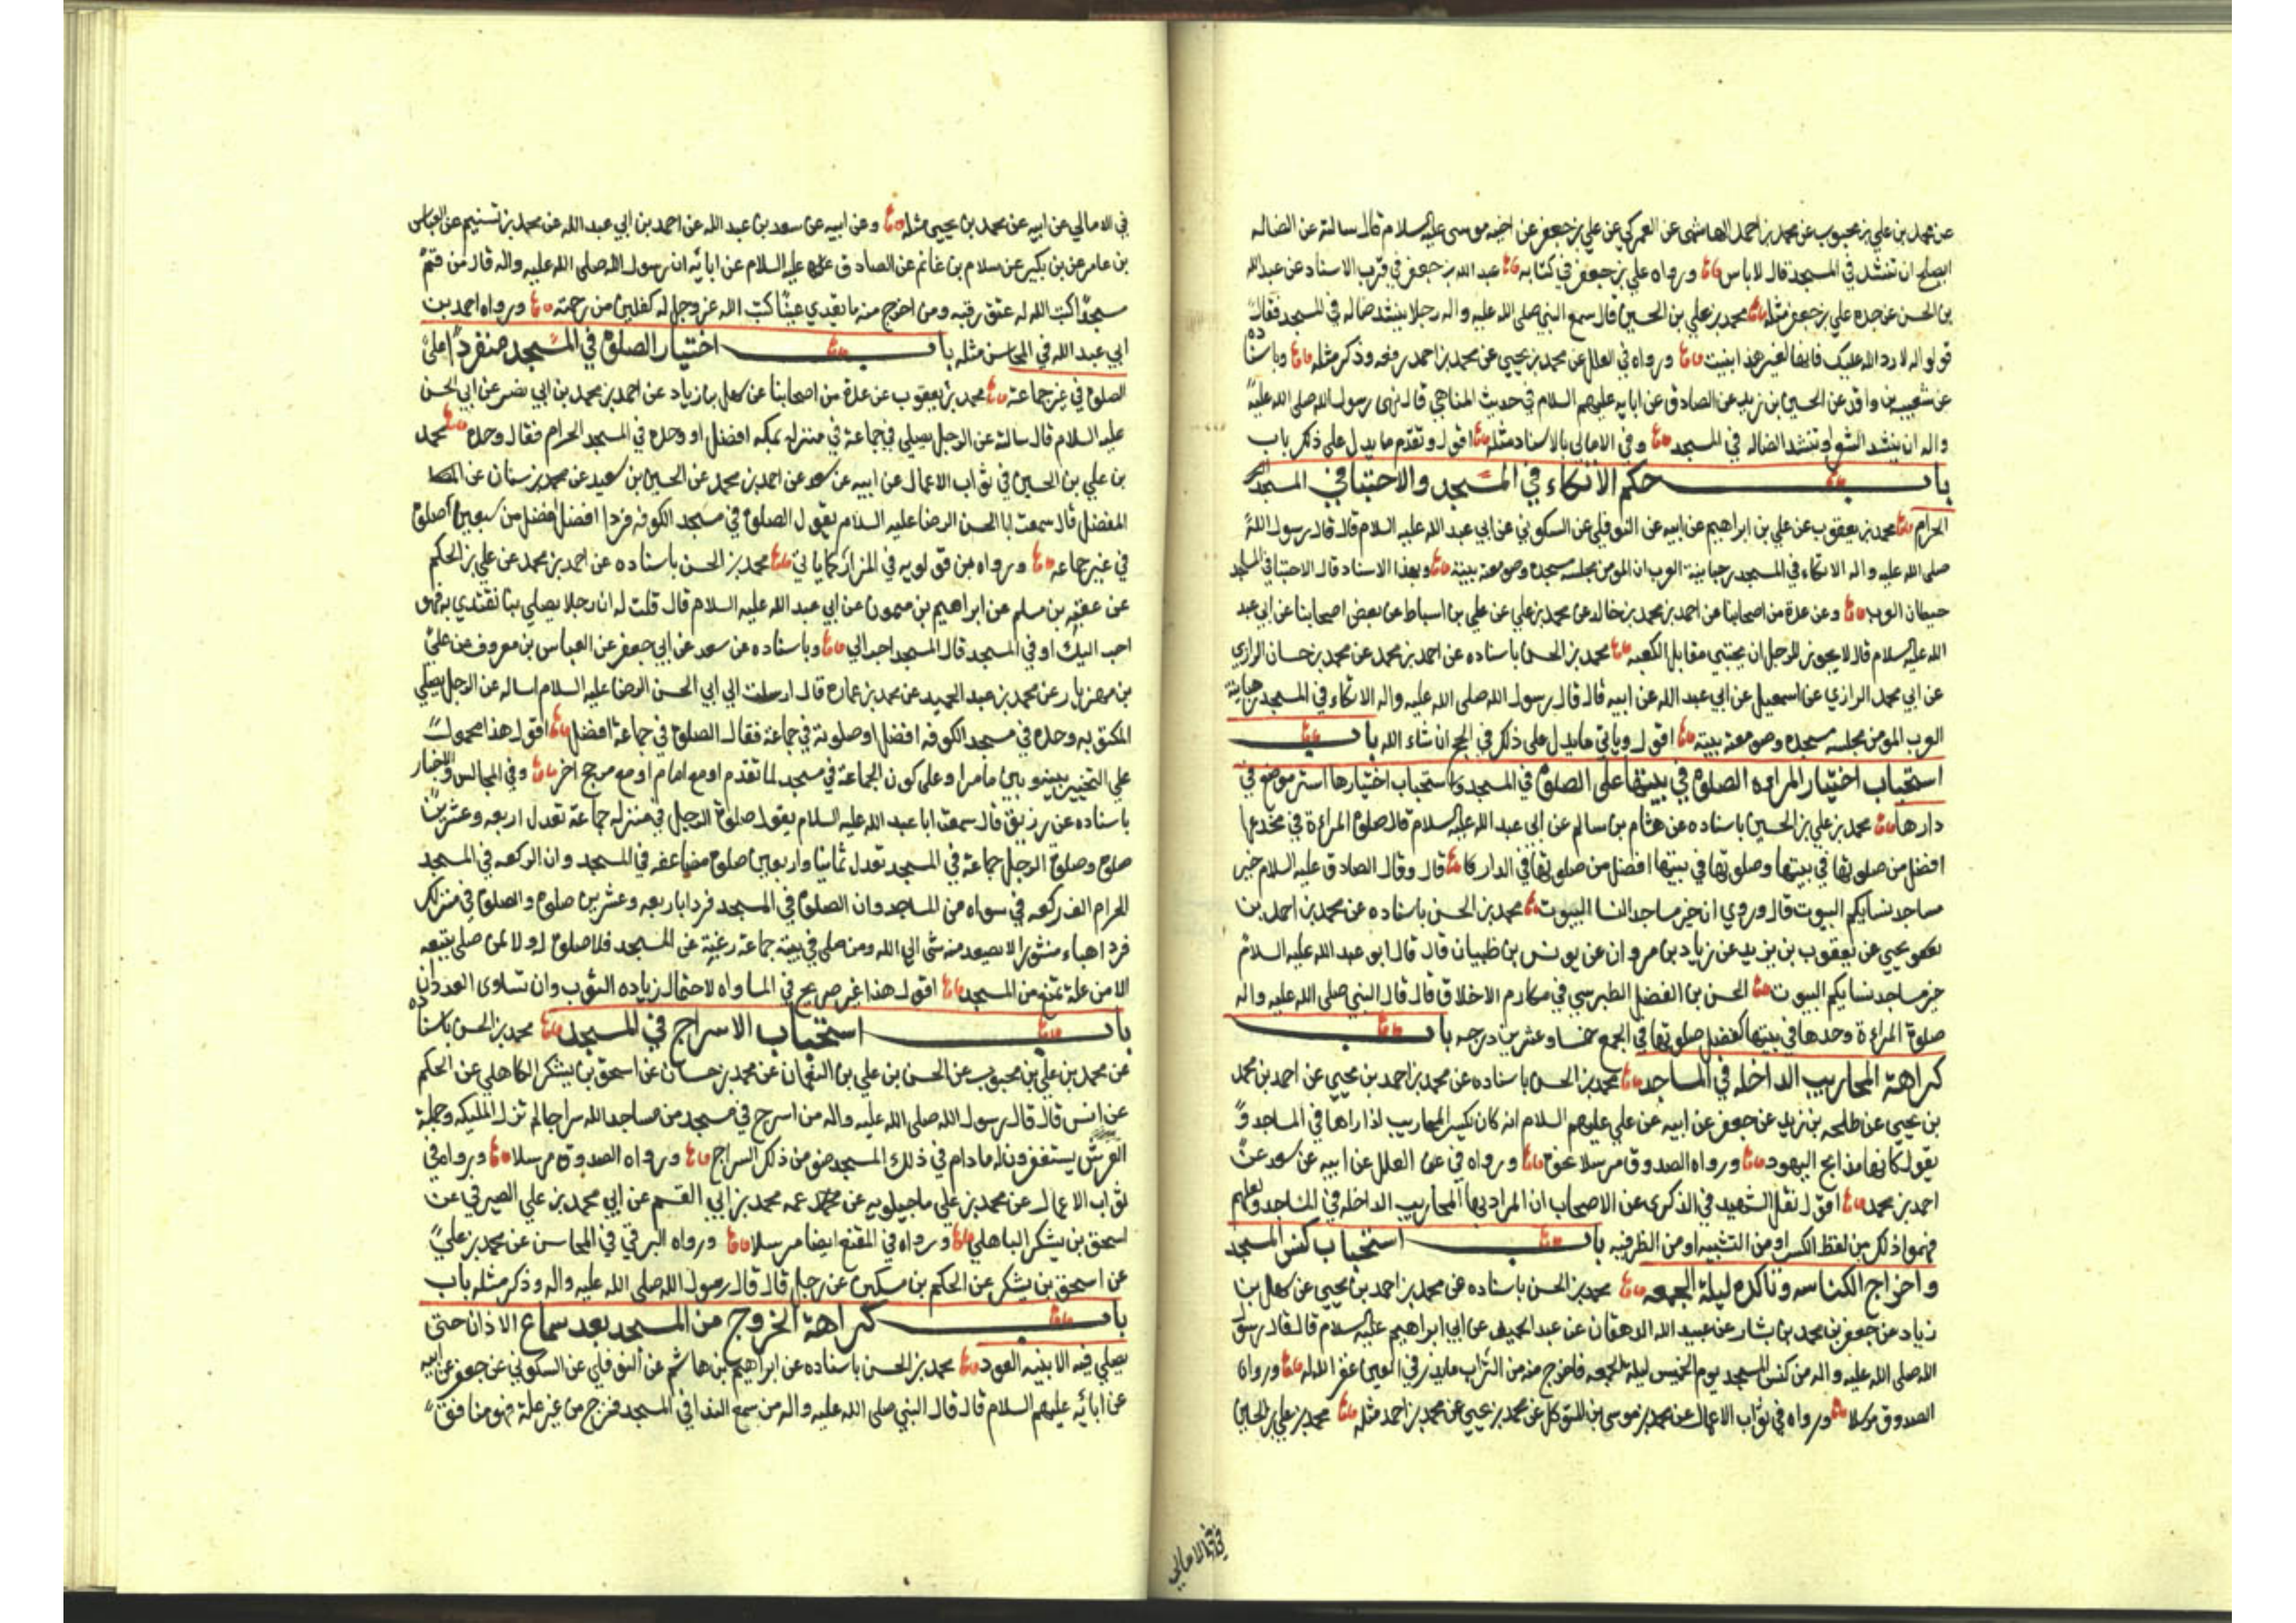 عن محمد بن علي بن محبوب عن محمد بن احمد الهاشمي عن العمركي عن علي بن جعفر عن اخيه موسى عليه السلام قال سالته عن الضاله
ايصلح ان تنشد في المسجد قال لا باس ورواه علي بن جعفر في كتابه عبد الله بن جعفر في قرب الاسناد عن عبد الله
بن الحسن عن جده علي بن جعفر مثله محمد بن علي بن الحسين قال سمع النبي صلى الله عليه واله رجلا ينشد ضاله في المسجد فقال
قولوا له لا رد الله عليك فانها لغير هذا بنيت ورواه في العلل عن محمد بن يحيى عن محمد بن احمد رفعه وذكر مثله وباسناده
عن شعيب بن واقد عن الحسين بن زيد عن الصادق عن ابايه عليهم السلام في حديث المناهي قال نهى رسول الله صلى الله عليه
واله ان ينشد الشعر او تنشد الضاله في المسجد وفي الامالي بالاسناد مثله اقول وتقدم ما يدل على ذلك باب
باب حكم الاتكاء في المسجد والاحتبا في المسجد
الحرام محمد بن يعقوب عن علي بن ابراهيم عن ابيه عن النوفلي عن السكوني عن ابي عبد الله عليه السلام قال قال رسول الله
صلى الله عليه واله الاتكاء في المسجد رهبانية العرب ان المومن مجلسه مسجده وصومعته بيته وبهذا الاسناد قال الاحتبا في المسجد
حيطان العرب وعن عدة من اصحابنا عن احمد بن محمد بن خالد عن محمد بن علي عن علي بن اسباط عن بعض اصحابنا عن ابي عبد
الله عليه السلام قال لا يجوز للرجل ان يحتبى مقابل الكعبه محمد بن الحسن باسناده عن احمد بن محمد عن محمد بن حسان الرازي
عن ابي محمد الرازي عن اسمعيل عن ابي عبد الله عن ابيه قال قال رسول الله صلى الله عليه واله الاتكاء في المسجد رهبانية
العرب المومن مجلسه مسجده وصومعته بيته اقول وياتي ما يدل على ذلك في الحج ان شاء الله باب
استحباب اختيار المراءه الصلوة في بيتها على الصلوة في المسجد واستحباب اختيارها استر موضع في
دارها محمد بن علي بن الحسين باسناده عن هشام بن سالم عن ابي عبد الله عليه السلام قال صلوة المراءة في مخدعها
افضل من صلوتها في بيتها وصلوتها في بيتها افضل من صلوتها في الدار قال وقال الصادق عليه السلام خير
مساجد نسايكم البيوت قال وروي ان خير مساجد النسا البيوت محمد بن الحسن باسناده عن محمد بن احمد بن
يحيى عن يعقوب بن يزيد عن زياد بن مروان عن يونس بن ظبيان قال قال ابو عبد الله عليه السلام
خير مساجد نسايكم البيوت الحسن بن الفضل الطبرسي في مكارم الاخلاق قال قال النبي صلى الله عليه واله
صلوة المراءة وحدها في بيتها كفضل صلوتها في الجمع خمسا وعشرين درجه باب
كراهة المحاريب الداخله في المساجد محمد بن الحسن باسناده عن محمد بن احمد بن يحيى عن احمد بن محمد
بن يحيى عن طلحه بن زيد عن جعفر عن ابيه عن علي عليهم السلام انه كان يكسر المحاريب اذا راها في المساجد و
يقول كانها مذابح اليهود ورواه الصدوق مرسلا نحوه ورواه في العلل عن ابيه عن سعد عن
احمد بن محمد اقول نقل الشهيد في الذكرى عن الاصحاب ان المراد بها المحاريب الداخله في المساجد ولعلهم
فهموا ذلك من لفظ الكسر او من التشبيه او من الظرفيه باب استحباب كنس المسجد
واخراج الكناسه وتاكده ليلة الجمعه محمد بن الحسن باسناده عن محمد بن احمد بن يحيى عن سهل بن
زياد عن جعفر بن محمد بن بشار عن عبيد الله الدهقان عن عبد الحميد عن ابي ابراهيم عليه السلام قال قال رسول
الله صلى الله عليه واله من كنس المسجد يوم الخميس ليلة الجمعه فاخرج منه من التراب ما يذر في العين غفر الله له ورواه
الصدوق مرسلا ورواه في ثواب الاعمال عن محمد بن موسى بن المتوكل عن محمد بن يحيى عن محمد بن احمد مثله محمد بن علي بن الحسين
في الامالي
في الامالي عن ابيه عن محمد بن يحيى مثله وعن ابيه عن سعد بن عبد الله عن احمد بن ابي عبد الله عن محمد بن تسنيم عن العباس
بن عامر عن بن بكير عن سلام بن غانم عن الصادق عليه السلام عن ابائه ان رسول الله صلى الله عليه واله قال من قم
مسجدا كتب الله له عتق رقبه ومن اخرج منه ما يقذي عينا كتب الله عز وجل له كفلين من رحمته ورواه احمد بن
ابي عبد الله في المحاسن مثله باب اختيار الصلوة في المسجد منفردا على
الصلوة في غيره جماعة محمد بن يعقوب عن عدة من اصحابنا عن سهل بن زياد عن احمد بن محمد بن ابي نصر عن ابي الحسن
عليه السلام قال سالته عن الرجل يصلي في جماعة في منزله بمكه افضل او وحده في المسجد الحرام فقال وحده محمد
بن علي بن الحسين في ثواب الاعمال عن ابيه عن سعد عن احمد بن محمد عن الحسين بن سعيد عن محمد بن سنان عن
المفضل قال سمعت ابا الحسن الرضا عليه السلام يقول الصلوة في مسجد الكوفه فردا افضل من سبعين صلوة
في غيره جماعه ورواه بن قولويه في المزار كما ياتي محمد بن الحسن باسناده عن احمد بن محمد عن علي بن الحكم
عن عقبه بن مسلم عن ابراهيم بن ميمون عن ابي عبد الله عليه السلام قال قلت له ان رجلا يصلي بنا نقتدي به فهو
احب اليك او في المسجد قال المسجد احب الي وباسناده عن سعد عن ابي جعفر عن العباس بن معروف عن علي
بن مهزيار عن محمد بن عبد الحميد عن محمد بن عماره قال ارسلت الي ابي الحسن الرضا عليه السلام اساله عن الرجل يصلي
المكتوبه وحده في مسجد الكوفه افضل او صلوته في جماعة فقال الصلوة في جماعة افضل اقول هذا محمول
علي التخيير بينه وبين ما مر او على كون الجماعة في مسجد لما تقدم او مع امام او مع مرجح اخر وفي المجالس والاخبار
باسناده عن رزيق قال سمعت ابا عبد الله عليه السلام يقول صلوة الرجل في منزله جماعة تعدل اربعه وعشرين
صلوة وصلوة الرجل جماعة في المسجد تعدل ثمانيا واربعين صلوة مضاعفه في المسجد وان الركعه في المسجد
الحرام الف ركعه في سواه من المساجد وان الصلوة في المسجد فردا باربعه وعشرين صلوة والصلوة في منزلك
فردا هباء منثورا لا يصعد منه شي الي الله ومن صلى في بيته جماعة رغبة عن المسجد فلا صلوة له ولا لمن صلى بتبعه
الا من علة تمنع من المسجد اقول هذا غير صريح في المساواه لاحتمال زياده الثوب وان تساوى العددان
باب استحباب الاسراج في المسجد محمد بن الحسن باسناده
عن محمد بن علي بن محبوب عن الحسن بن علي بن النعمان عن محمد بن حسان عن اسحق بن يشكر الكاهلي عن الحكم
عن انس قال قال رسول الله صلى الله عليه واله من اسرج في مسجد من مساجد الله سراجا لم تزل المليكه وحملة
العرش يستغفرون له ما دام في ذلك المسجد ضو من ذلك السراج ورواه الصدوق مرسلا ورواه في
ثواب الاعمال عن محمد بن علي ماجيلويه عن عمه محمد بن ابي القسم عن ابي محمد بن علي الصيرفي عن
اسحق بن يشكر الباهلي ورواه في المقنع ايضا مرسلا ورواه البرقي في المحاسن عن محمد بن علي
عن اسحق بن يشكر عن الحكم بن مسكين عن رجل قال قال رسول الله صلى الله عليه واله وذكر مثله باب
باب كراهة الخروج من المسجد بعد سماع الاذان حتى
يصلي فيه الا بنية العود محمد بن الحسن باسناده عن ابراهيم بن هاشم عن النوفلي عن السكوني عن جعفر عن ابيه
عن ابائه عليهم السلام قال قال النبي صلى الله عليه واله من سمع الندا في المسجد فخرج من غير علة فهو منافق